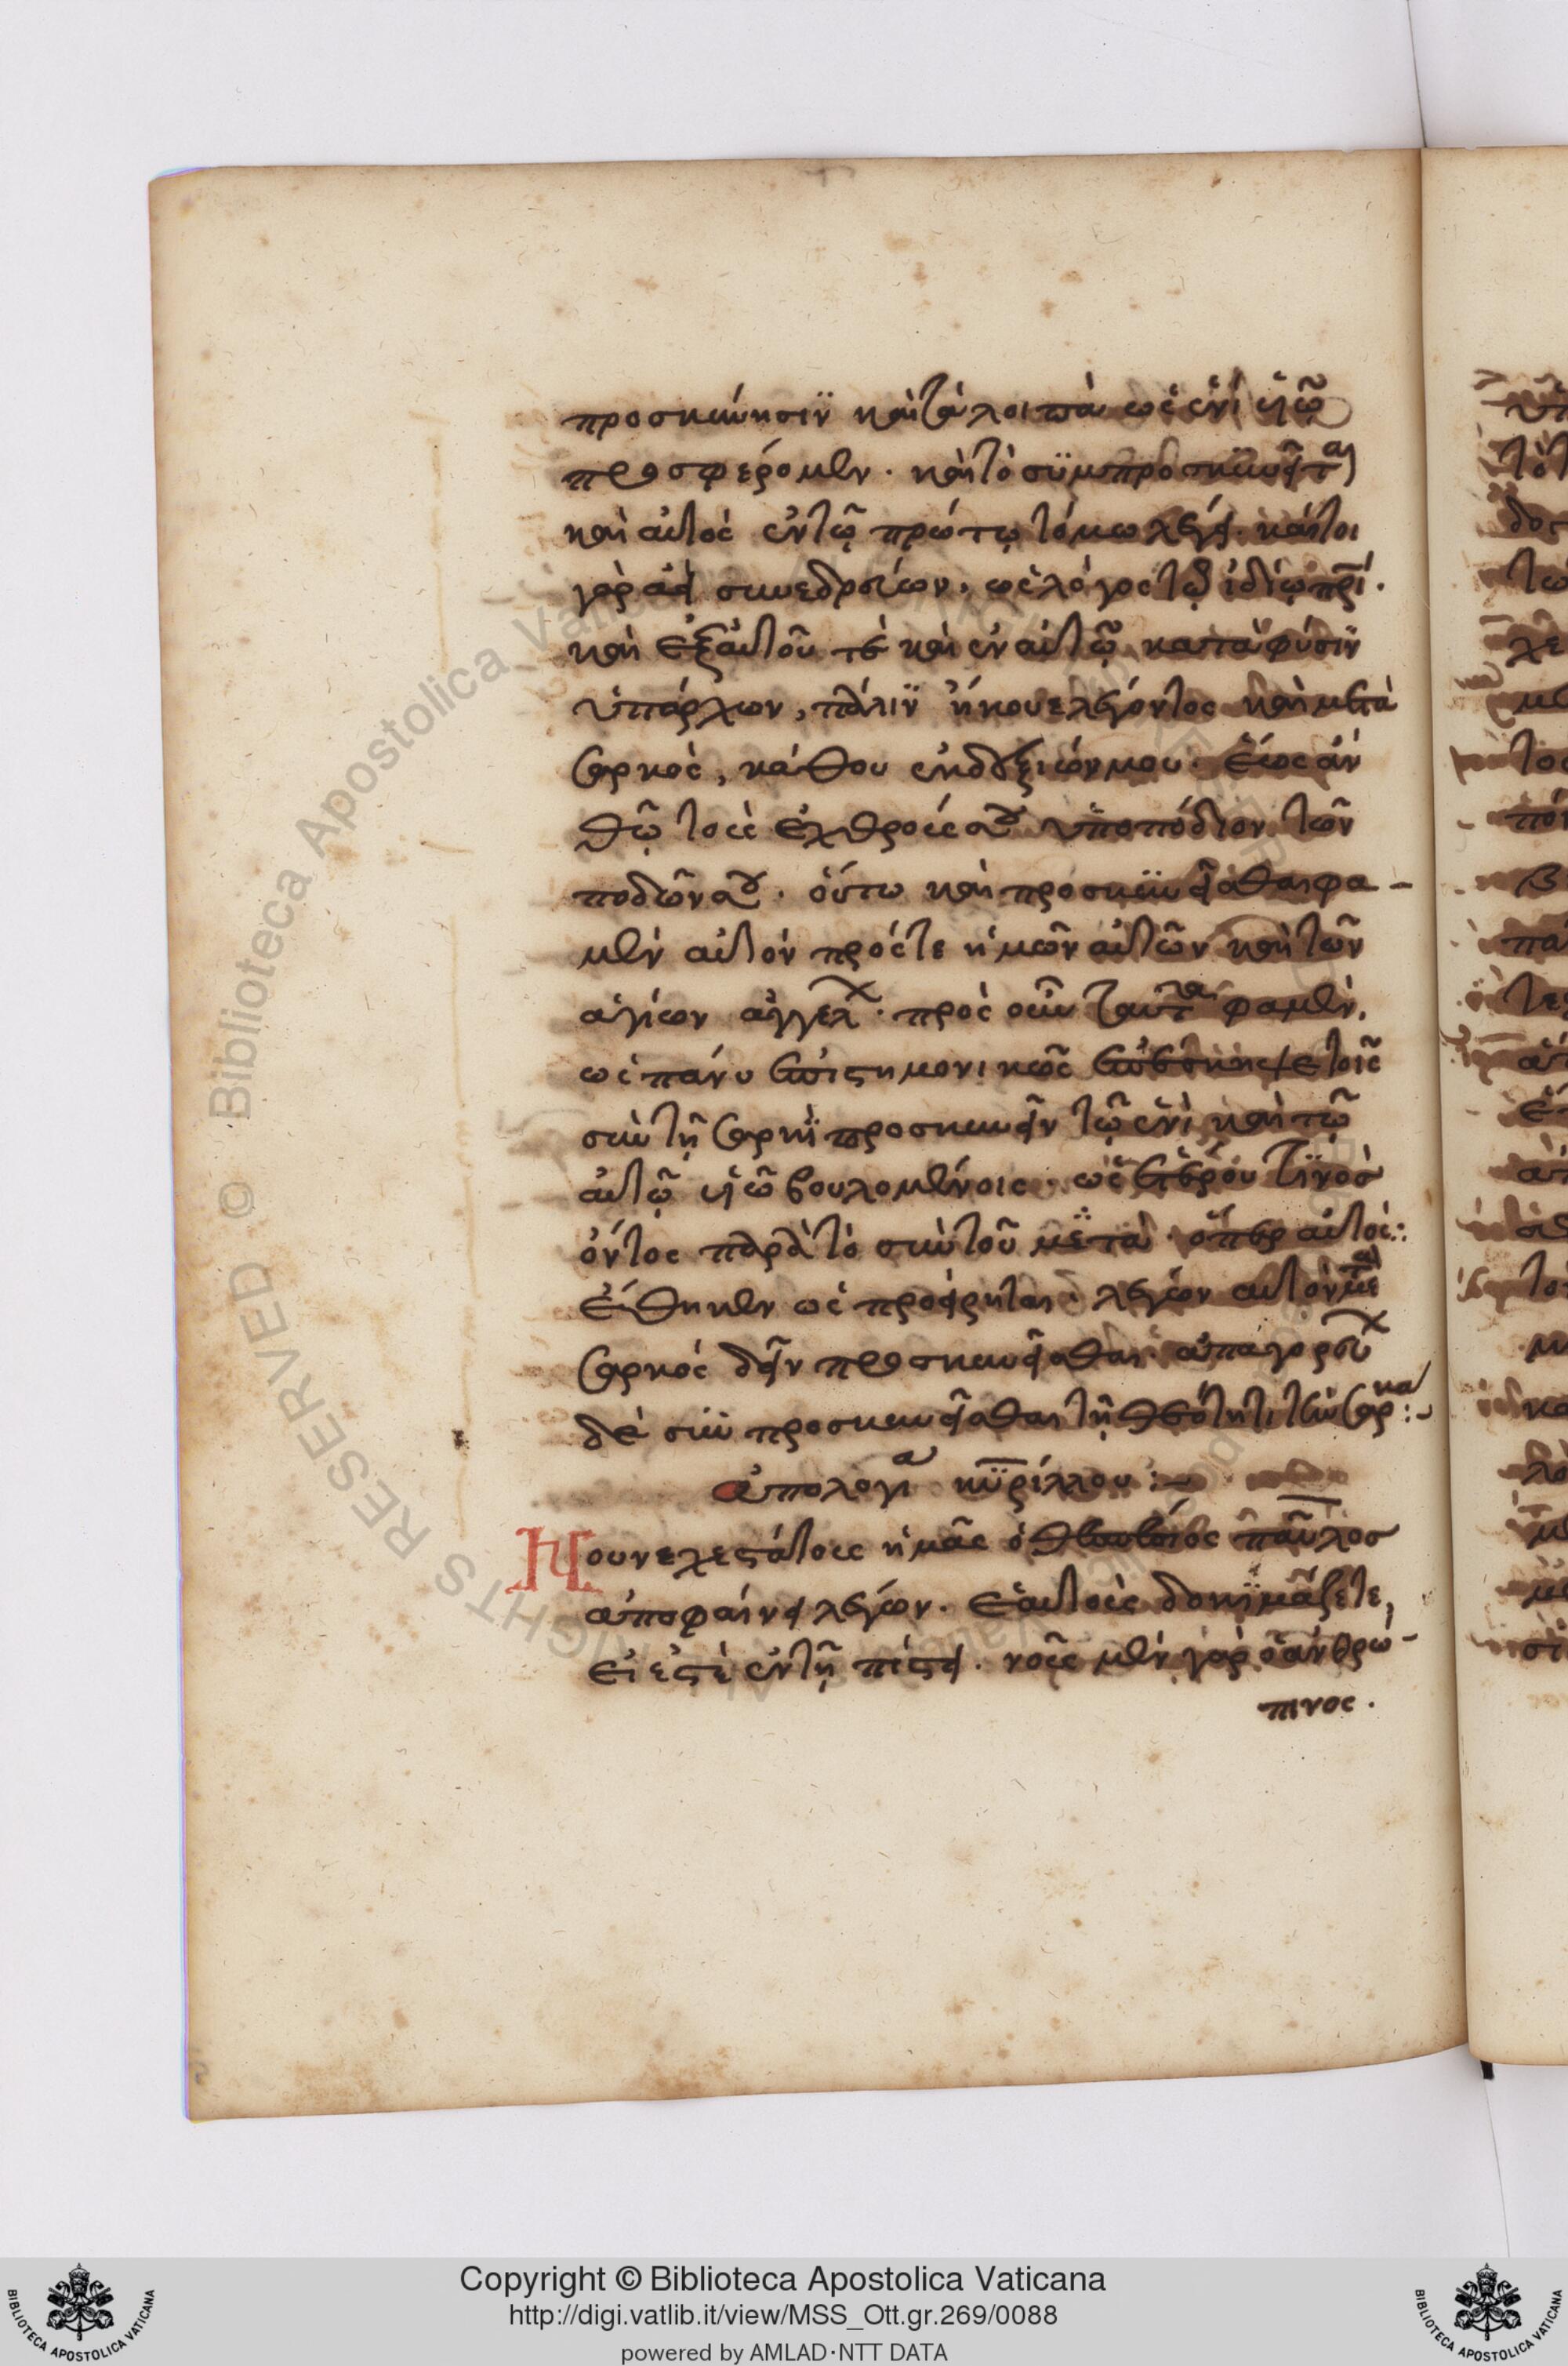 προσκύνησϊν καὶ τὰ λοιπὰ ὡς ἑνὶ υἱῶ
προσφέρομεν · καὶ τὸ σϋμπροσκϋνεῖται
καὶ αὐτὸς ἐν τῶ πρώτω τόμω λέγει · καίτοι
γὰρ ἀεὶ συνεδρεύων, ὡς λόγος τῶ ἰδίω πρί ·
καὶ ἐξ αὐτοῦ τὲ καὶ ἐν αὐτῶ κατὰ φύσϊν
ὑπάρχων, πάλϊν ἤκουε λέγοντος καὶ μετὰ
σαρκός, κάθου ἐκ δεξιῶν μου · ἕως ἂν
θῶ τοὺς ἐχθρούς σου ὑποπόδιον τῶν
ποδῶν σου · οὕτω καὶ προσκϋνεῖσθαι φα-
μὲν αὐτὸν πρός τε ἡμῶν αὐτῶν καὶ τῶν
ἁγίων ἀγγέλ · πρὸς οὖν ταῦτα φαμὲν,
ὡς πάνυ
σὺν τῆ σαρκὶ προσκυνεῖν τῶ ἑνὶ καὶ τῶ
αὐτῶ υἱῶ βουλομένοις · ὡς ἑτέρου τϊνὸσ
ὄντος παρὰ τὸ σὺν τοῦ μετὰ · ὅπερ αὐτὸς:
ἔθηκεν ὡς προείρηται · λέγων αὐτὸν μετὰ
σαρκὸς δεῖν προσκυνεῖσθαι · ἀπαγορεύ
δὲ σὺν προσκυνεῖσθαι τῆ θεότητι τὴν σάρκα :-
ἀπολογία κϋρίλλου :-
Ἡ οὐν ἐχεστάτους ἡμᾶς ὁ παῦλοσ
ἀποφαίνει λέγων · ἑαυτοὺς δοκϊμάζετε,
εἰ ἐστὲ ἐν τῆ πίστει · νοῦς μὲν γὰρ ὁ ἀνθρώ-
πινος ·
Copyright © Biblioteca Apostolica Vaticana
http://digi.vatlib.it/view/MSS_Ott.gr.269/0088
powered by AMLAD·NTT DATA